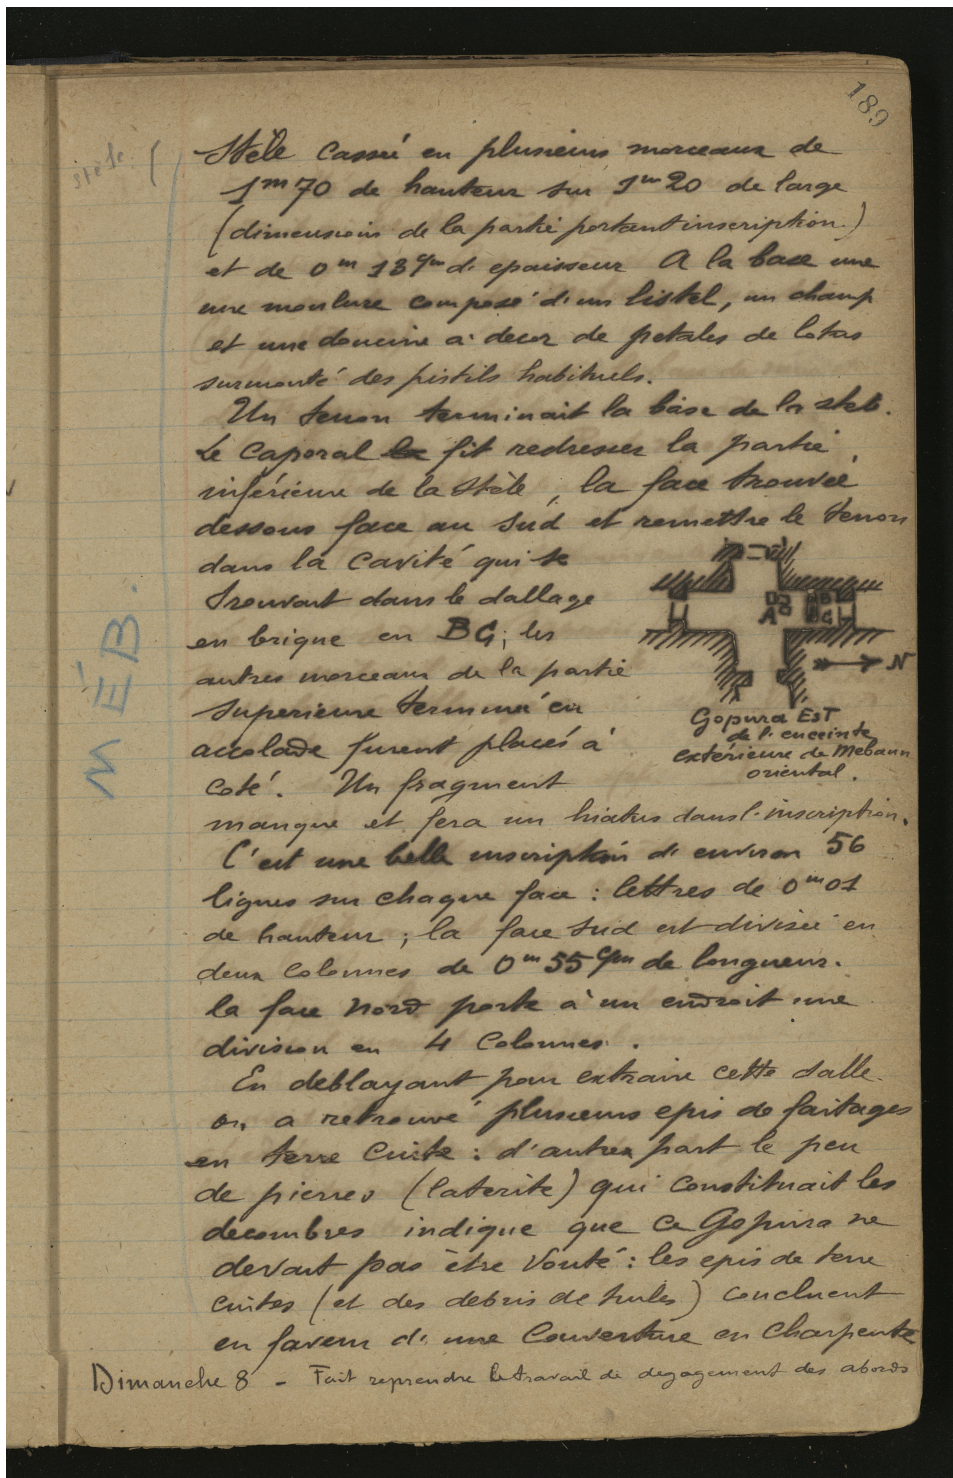 189
stèle
Stèle cassée en plusieurs morceaux de
1m70 de hauteur sur 1m20 de large
(dimensions de la partie portant inscription.)
et de 0m 13 c/m d'epaisseur A la base une
une moulure composé d'un listel, un champ
et une doucine à decor de petales de lotus
surmonté des pistils habituels.
Un tenon terminait la base de la stele.
Le Caporal fit redresser la partie
inférieure de la Stèle, la face trouvée
dessous face au Sud et remettre le tenon
dans la cavité qui se
trouvait dans le dallage
en brique en BC; les
autres morceaux de la partie
superieure terminée en
accolade furent placés à
coté. Un fragment
manque et fera un hiatus dans l'inscription.
D B
A C
N
Gopura EsT
de l'enceinte
extérieure de Mebaun
oriental.
MÉB.
C'est une belle inscription d'environ 56
lignes sur chaque face : lettres de 0m01
de hauteur ; la face Sud est divisée en
deux colonnes de 0m55 c/m de longueur.
la face Nord porte à un endroit une
division en 4 Colonnes.
En deblayant pour extraire cette dalle
on a retrouvé plusieurs epis de faitages
en terre cuite : d'autre part le peu
de pierres (laterite) qui constituait les
decombres indique que ce Gopura ne
devait pas être Vouté : les epis de terre
cuites (et des debris de tuiles) concluent
en faveur d'une Couverture en Charpente
Dimanche 8 - Fait reprendre le travail de degagement des abords